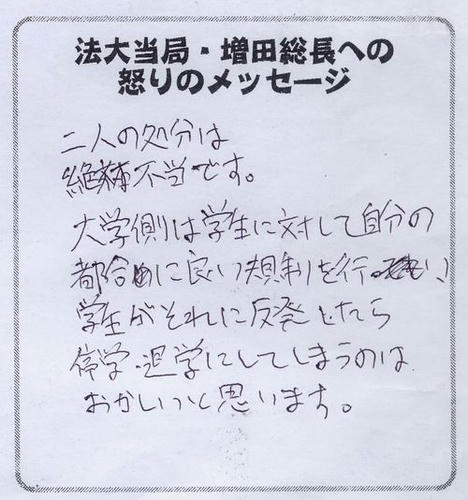 法大当局・増田総長への
怒りのメッセージ
二人の処分は
絶対不当です。
大学側は学生に対して自分の
都合に良い規制を行
学生がそれに反発したら
停学・退学にしてしまうのは
おかしいと思います。